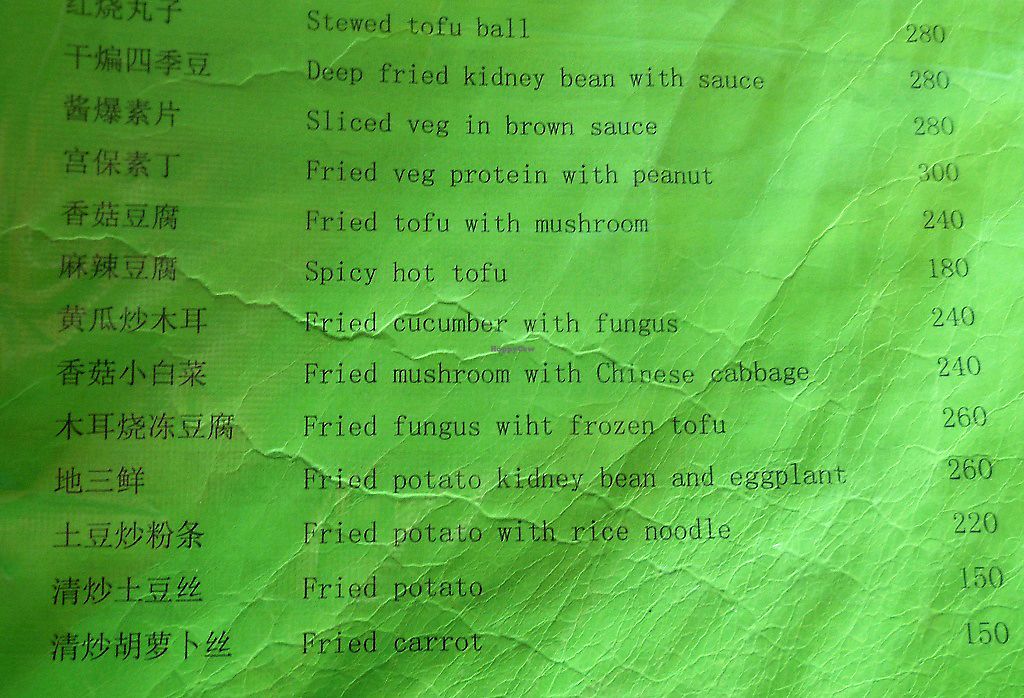 红烧丸子 Stewed tofu ball 280
干煸四季豆 Deep fried kidney bean with sauce 280
酱爆素片 Sliced veg in brown sauce 280
宫保素丁 Fried veg protein with peanut 300
香菇豆腐 Fried tofu with mushroom 240
麻辣豆腐 Spicy hot tofu 180
黄瓜炒木耳 Fried cucumber with fungus 240
HappyCow
香菇小白菜 Fried mushroom with Chinese cabbage 240
木耳烧冻豆腐 Fried fungus wiht frozen tofu 260
地三鲜 Fried potato kidney bean and eggplant 260
土豆炒粉条 Fried potato with rice noodle 220
清炒土豆丝 Fried potato 150
清炒胡萝卜丝 Fried carrot 150